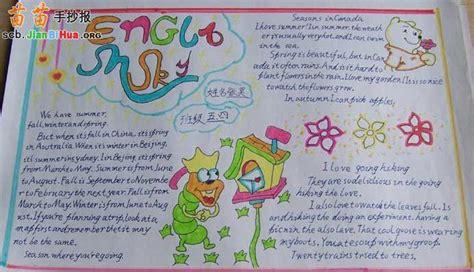 苗苗手抄报
scb.JianBiHua.ORG
ENGLISH SKY
姓名
班级 五.四
We have summer,
fall, winter and spring.
But when it's fall in China, it is spring
in Australia. When it's winter in Beijing,
it is summer in sydney. In Beijing it is spring
from March to May. Summer is from June
to August. Fall is September to Novembe
r to February the next year. Fall is from
March to May. Winter is from June to Aug
ust. If you're planning a trip, look at a
map first and remember that it may
not be the same.
Season where you're going.
Seasons in Canada
I love summer! In summer, the weath
er is usually very hot, and I can swim
in the sea.
Spring is beautiful, but in Can
ada it often rains. And is it hard to
plant flowers in the rain. I love my garden! It is so nice
to watch the flowers grow.
In autumn I can pick apples,
I love going hiking
They are
hiking the love.
I also love to watch the leaves fall. Is
and hiking the doing an experiment, having a
picnic the also love. That cool grove is wearing
my boots, You cat e soup with my group.
Twenty trains tried to trees.